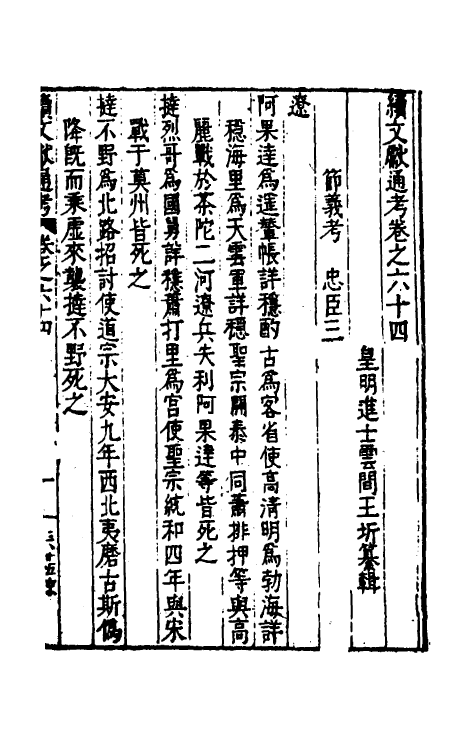 續文獻通考卷之六十四
皇明進士雲間王圻纂輯
節義考　忠臣三
遼
阿果達為遥輦帳詳穩酌古為客省使高清明為勃海詳
穩海里為天雲軍詳穩聖宗開泰中同蕭排押等與高
麗戰於茶陀二河遼兵失利阿果達等皆死之
撻烈哥為國舅詳穩蕭打里為宮使聖宗統和四年與宋
戰于莫州皆死之
撻不野為北路招討使道宗大安九年西北夷磨古斯偽
降旣而乘虛來襲撻不野死之
續文獻通考
卷之六十四
一